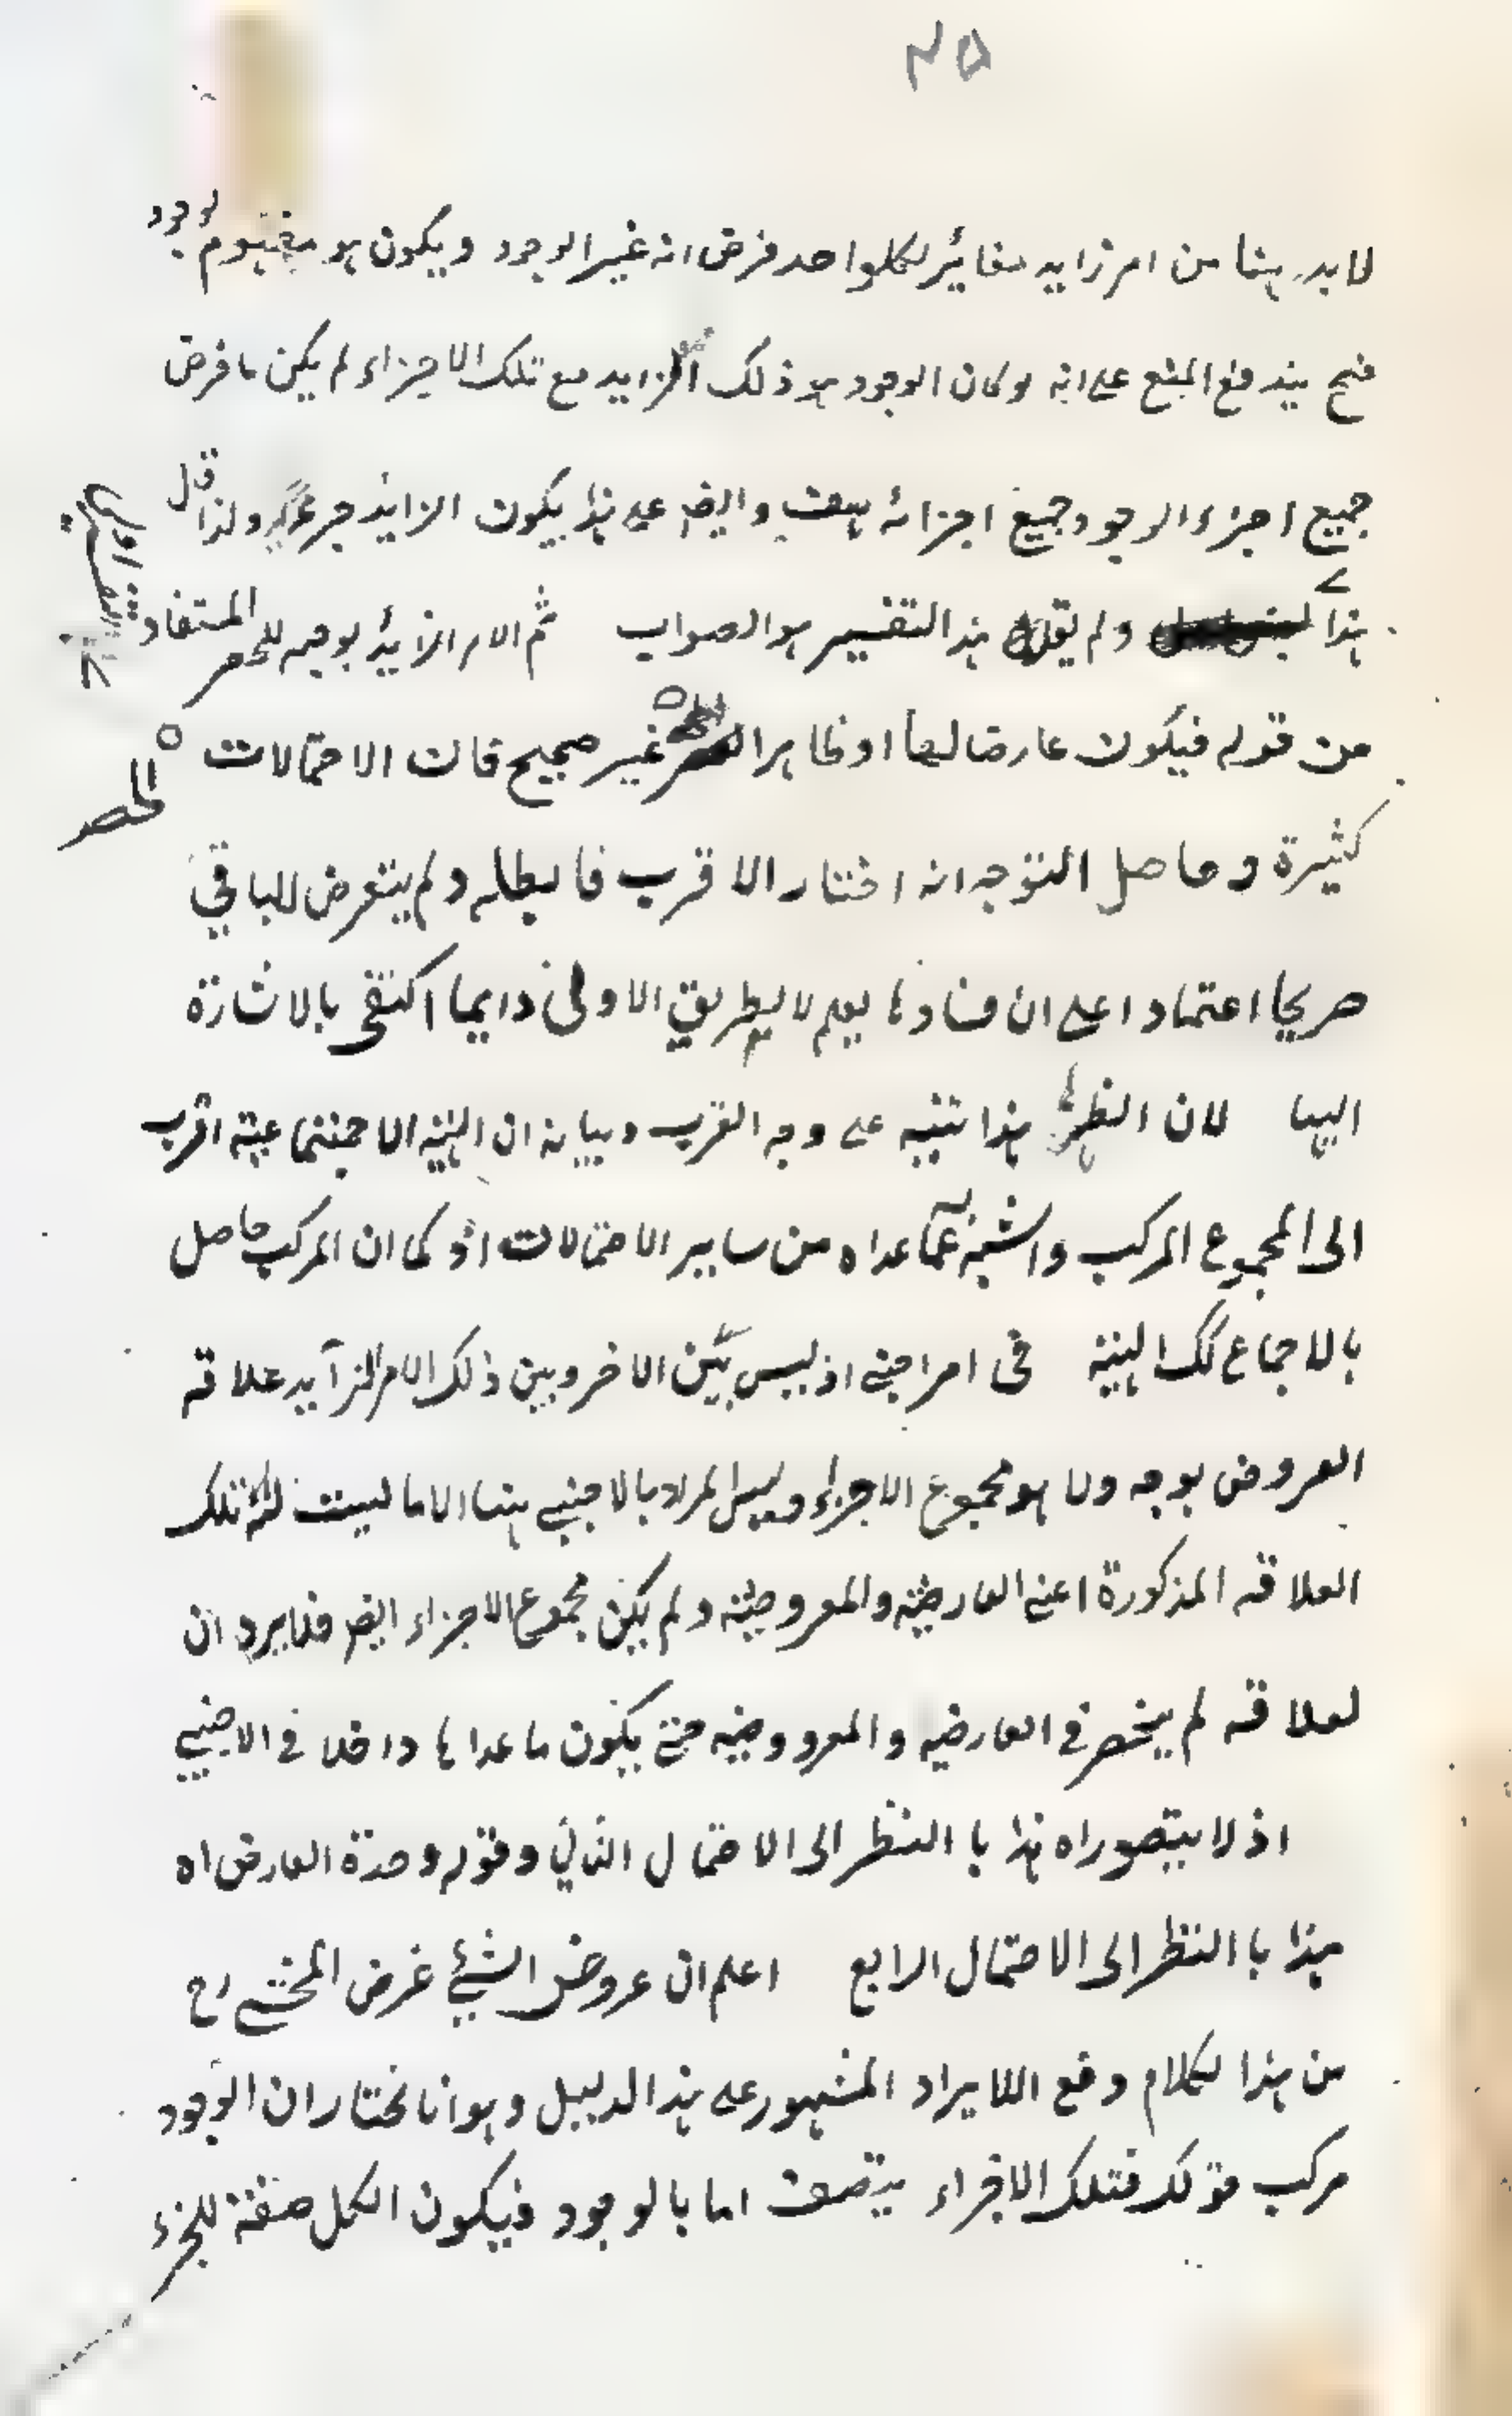 ٢٥
لا بد ههنا من امر زايد مغائر لكلواحد فرض انه غير الوجود ويكون هو مفهوم لوجود
فح يندفع المنع على انه لو كان الوجود هو ذلك الزايد مع تلك الاجزاء لم يكن ما فرض
جميع اجزاء الوجود جميع اجزائه هف وايض على هذا يكون الزايد ولذا قال
هذا ولم يقل هذا التفسير هو الصواب ثم الامر الزايد بوجه للحصر المستفاد
من قوله فيكون عارضا لها او ظاهرا غير صحيح فان الاحتمالات
الحصر
كثيرة وحاصل التوجه انه اختار الاقرب فابطله ولم يتعرض للباقي
صريحا اعتمادا على ان فسادها يعلم بالطريق الاولى وايما اكتفى بالاشارة
اليها لان النظر هذا تنبيه على وجه القرب وبيانه ان الهيئة الاجتماعية اقرب
الى المجموع المركب واشبه عما عداه من ساير الاحتمالات اذ كما ان المركب حاصل
بالاجماع كك الهيئة في امر اجنبي اذ ليس بين الاخر وبين ذلك الامر الزايد علاقه
العروض بوجه ولا هو مجموع الاجزاء وليس المراد بالاجنبي ههنا الا ما ليست له تلك
العلاقه المذكورة اعني العارضية والمعروضية ولم يكن مجموع الاجزاء ايض فلا يرد ان
لعلاقه لم ينحصر في العارضيه والمعروضيه حتى يكون ما عداها داخلا في الاجنبي
اذ لا يتصور اه هذا با النظر الى الاحتمال الثاني وقوله وحدة العارض اه
هذا با النظر الى الاحتمال الرابع اعلم ان عروض الشيء غرض المحشي رح
من هذا لكلام دفع اللايراد المشهور على هذا الدليل وهو انا نختار ان الوجود
مركب قولك فتلك الاجزاء يتصف اما بالوجود فيكون الكل صفة للجزء